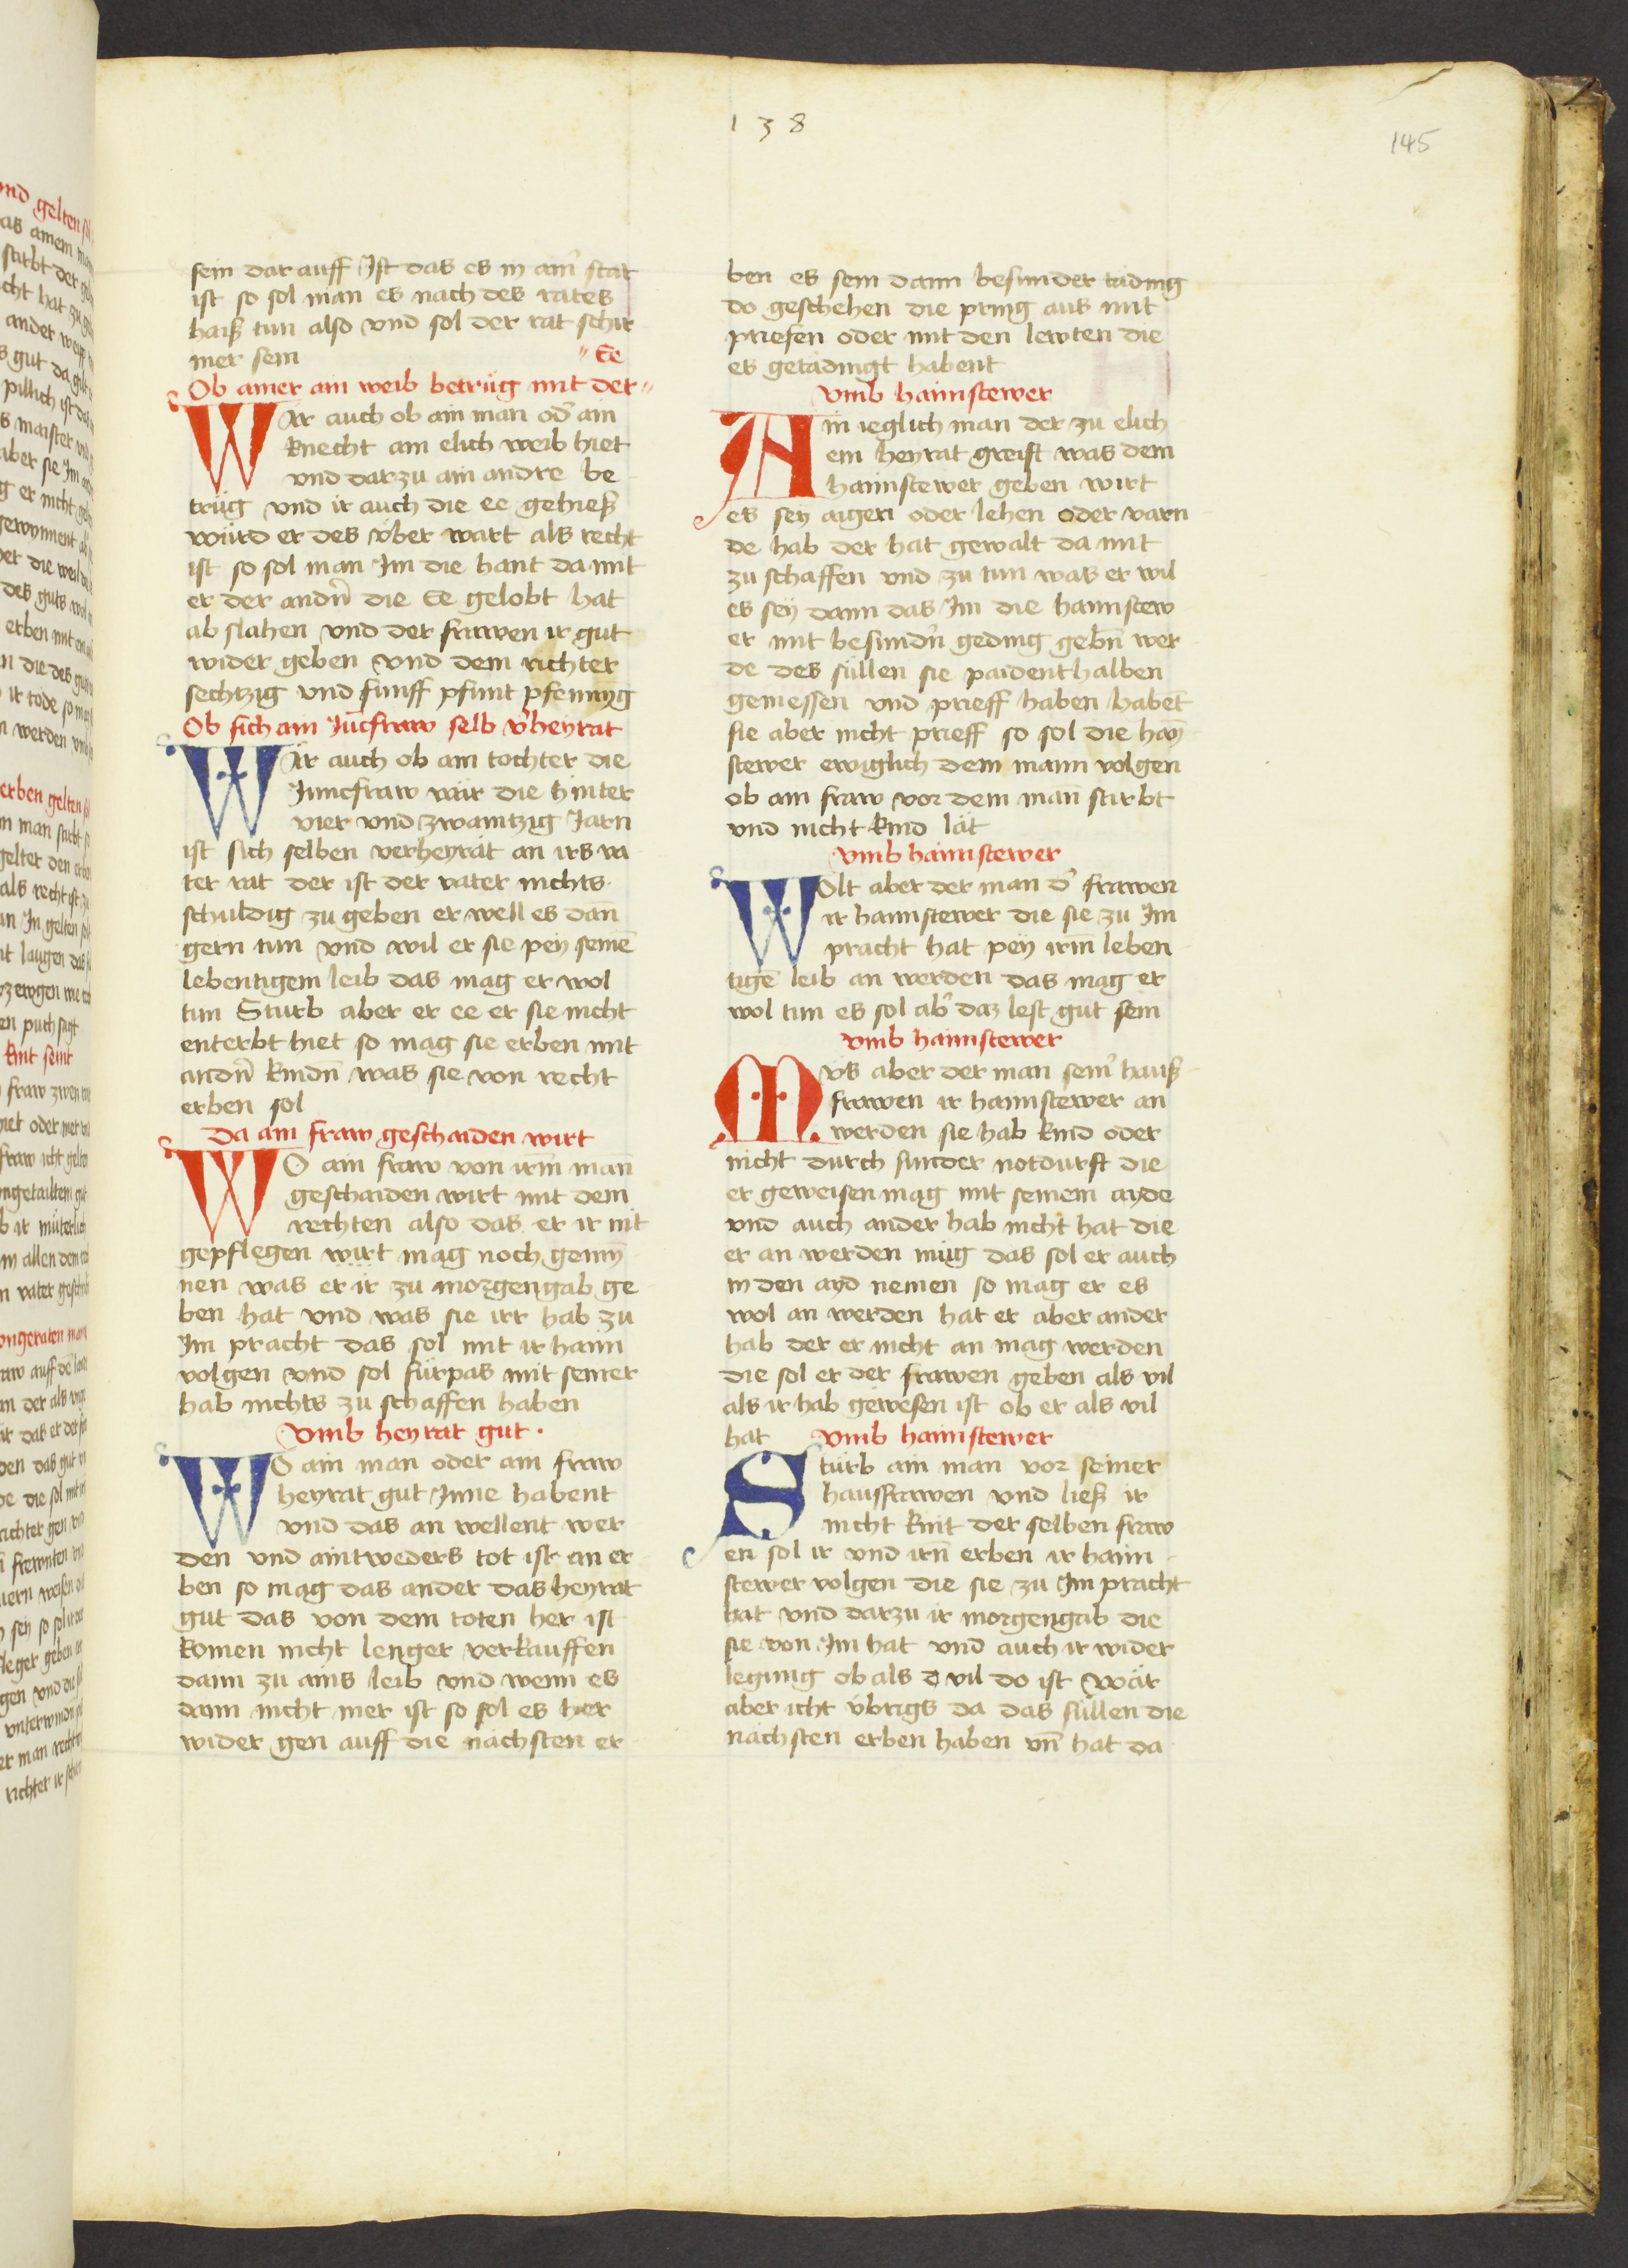 138
145
sein dar auff Ist das es in aim̄ stat
ist so sol man es nach des rates
haiß tun also vnd sol der rat schir
mer sein
Ob ainer ain weib betrüg mit der Ee
WAr auch ob ain man od̄ ain
knecht ain elich weib hiet
vnd darzu ain andre be
trüg vnd ir auch die ee gehieß
würd er des v̈ber wart als recht
ist so sol man Im die hant da mit
er der andn̄ die Ee gelobt hat
ab slahen vnd der frawen ir gut
wider geben vnd dem richter
sechtzig vnd funff pfunt pfennyg
Ob sich ain Jūcfraw selb v̄heyrat
WAr auch ob ain tochter die
Junncfraw wär die hinter
vier vnd zwaintzig Jarn
ist sich selben verheyrät an irs va
ter rat der ist der vater nichts
schuldig zu geben er well es dan̄
gern tun vnd wil er sie pey seinē
lebentigem leib das mag er wol
tun Sturb aber er ee er sie nicht
enterbt hiet so mag sie erben mit
andn̄ kindn̄ was sie von recht
erben sol
Da ain fraw geschaiden wirt
WO ain fraw von irm̄ man̄
geschaiden wirt mit dem
rechten also das er ir nit
gepflegen wirt mag noch gemȳ
nen was er ir zu morgengab ge
ben hat vnd was sie irr hab zu
Im pracht das sol mit ir haim
volgen vnd sol fürpas mit seiner
hab nichts zu schaffen haben
Vmb heyrat gut
WO ain man oder ain fraw
heyrat gut Inne habent
vnd das an wellent wer
den vnd aintweders tot ist an er
ben so mag das ander das heyrat
gut das von dem toten her ist
komen nicht lenger verkauffen
dann zu ains leib vnd wenn es
dann nicht mer ist so sol es her
wider gen auff die nächsten er
ben es sein dann besunder täding
do geschehen die pring aus mit
priefen oder mit den lewten die
es getädingt habent
Vmb haimstewer
AIn ieglich man der zu elich
em heyrat greift was dem
haimstewer geben wirt
es sey aigen oder lehen oder varn
de hab der hat gewalt da mit
zu schaffen vnd zu tun was er wil
es sey dann das Im die haimstew
er mit besundn̄ geding gebn̄ wer
de des süllen sie paidenthalben
geniessen vnd prieff haben habēt
sie aber nicht prieff so sol die haȳ
stewer ewiglich dem mann volgen
ob ain fraw vor dem man̄ stirbt
vnd nicht kind lät
Vmb haimstewer
WOlt aber der man d̄ frawen
ir haimstewer die sie zu Im
pracht hat pey irm̄ leben
tigē leib an werden das mag er
wol tun es sol ab̄ daz lest gut sein
Vmb haimstewer
MVs aber der man sein̄ hauß
frawen ir haimstewer an
werden sie hab kind oder
nicht durch sunder notdurft die
er geweisen mag mit seinem ayde
vnd auch ander hab nicht hat die
er an werden müg das sol er auch
in den ayd nemen so mag er es
wol an werden hat er aber ander
hab der er nicht an mag werden
die sol er der frawen geben als vil
als ir hab gewesen ist ob er als vil
hat Vmb haimstewer
Stürb ain man vor seiner
hausfrawen vnd ließ ir
nicht kint der selben fraw
en sol ir vnd irn̄ erben ir haim
stewer volgen die sie zu Im pracht
hat vnd darzu ir morgengab die
sie von Im hat vnd auch ir wider
legung ob als vil do ist wär
aber icht v̈brigs da das süllen die
nächsten erben haben vn̄ hat da